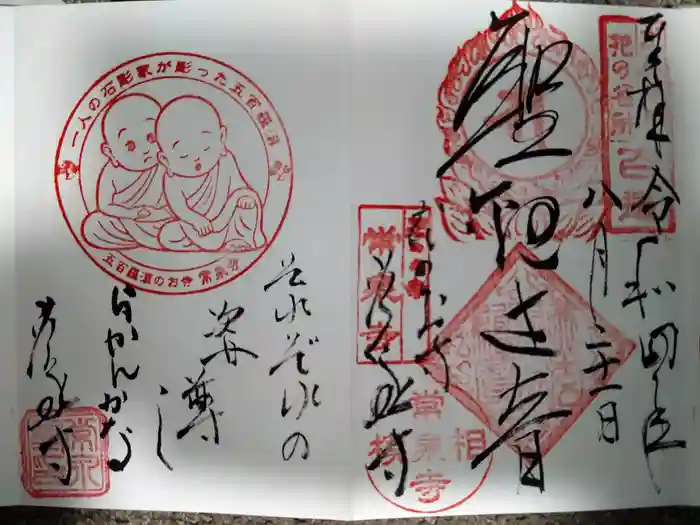 奉拝 令和四年
八月二十一日
聖観世音
花のお寺
常泉寺
常泉寺
常泉寺
それぞれの
姿尊
し
らかんかな
常泉寺
一人の石彫家が彫った五百羅漢
五百羅漢のお寺 常泉寺